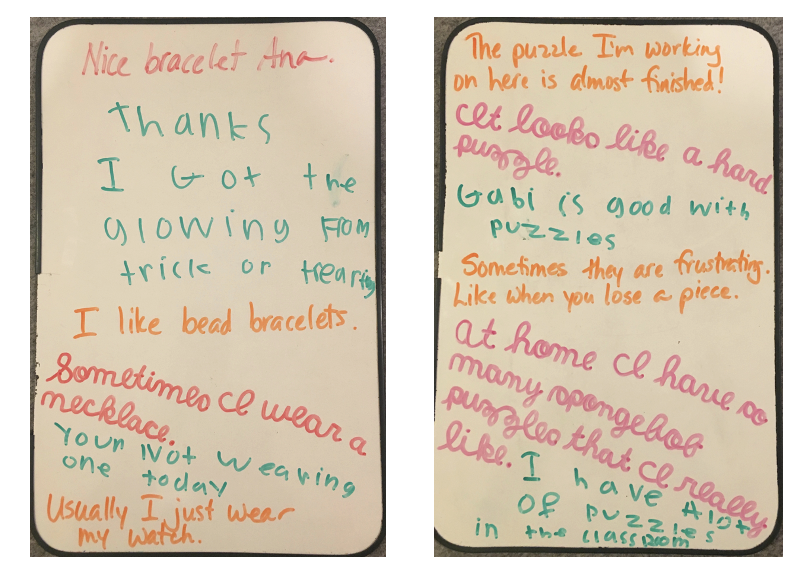 Nice bracelet Ana.
Thanks
I Got the
glowing From
trick or treating
I like bead bracelets.
Sometimes I wear a
necklace.
Your Not wearing
one today
Usually I just wear
my watch.
The puzzle I'm working
on here is almost finished!
It looks like a hard
puzzle.
Gabi is good with
puzzles
Sometimes they are frustrating.
Like when you lose a piece.
At home I have so
many spongebob
puzzles that I really
like.
I have Alot
OF puzzles
in the classroom